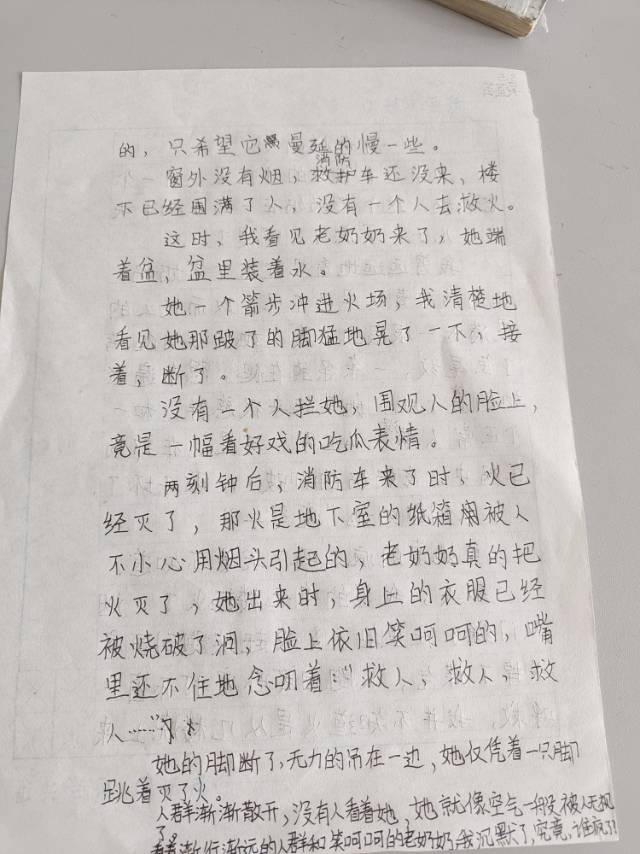 的，只希望它曼延的慢一些。
窗外没有烟，消防车还没来，楼
下已经围满了人，没有一个人去救火。
这时，我看见老奶奶来了，她端
着盆，盆里装着水。
她一个箭步冲进火场，我清楚地
看见她那跛了的脚猛地晃了一下，接
着，断了。
没有一个人拦她，围观人的脸上，
竟是一幅看好戏的吃瓜表情。
两刻钟后，消防车来了时，火已
经灭了，那火是地下室的纸箱被人
不小心用烟头引起的，老奶奶真的把
火灭了，她出来时，身上的衣服已经
被烧破了洞，脸上依旧笑呵呵的，嘴
里还不住地念叨着：“救人，救人，救
人……”
她的脚断了，无力的吊在一边，她仅凭着一只脚
跳着灭了火。
人群渐渐散开，没有人看着她，她就像空气一般没被人无视
了。
看着渐行渐远的人群和笑呵呵的老奶奶，我沉默了，究竟，谁疯了？